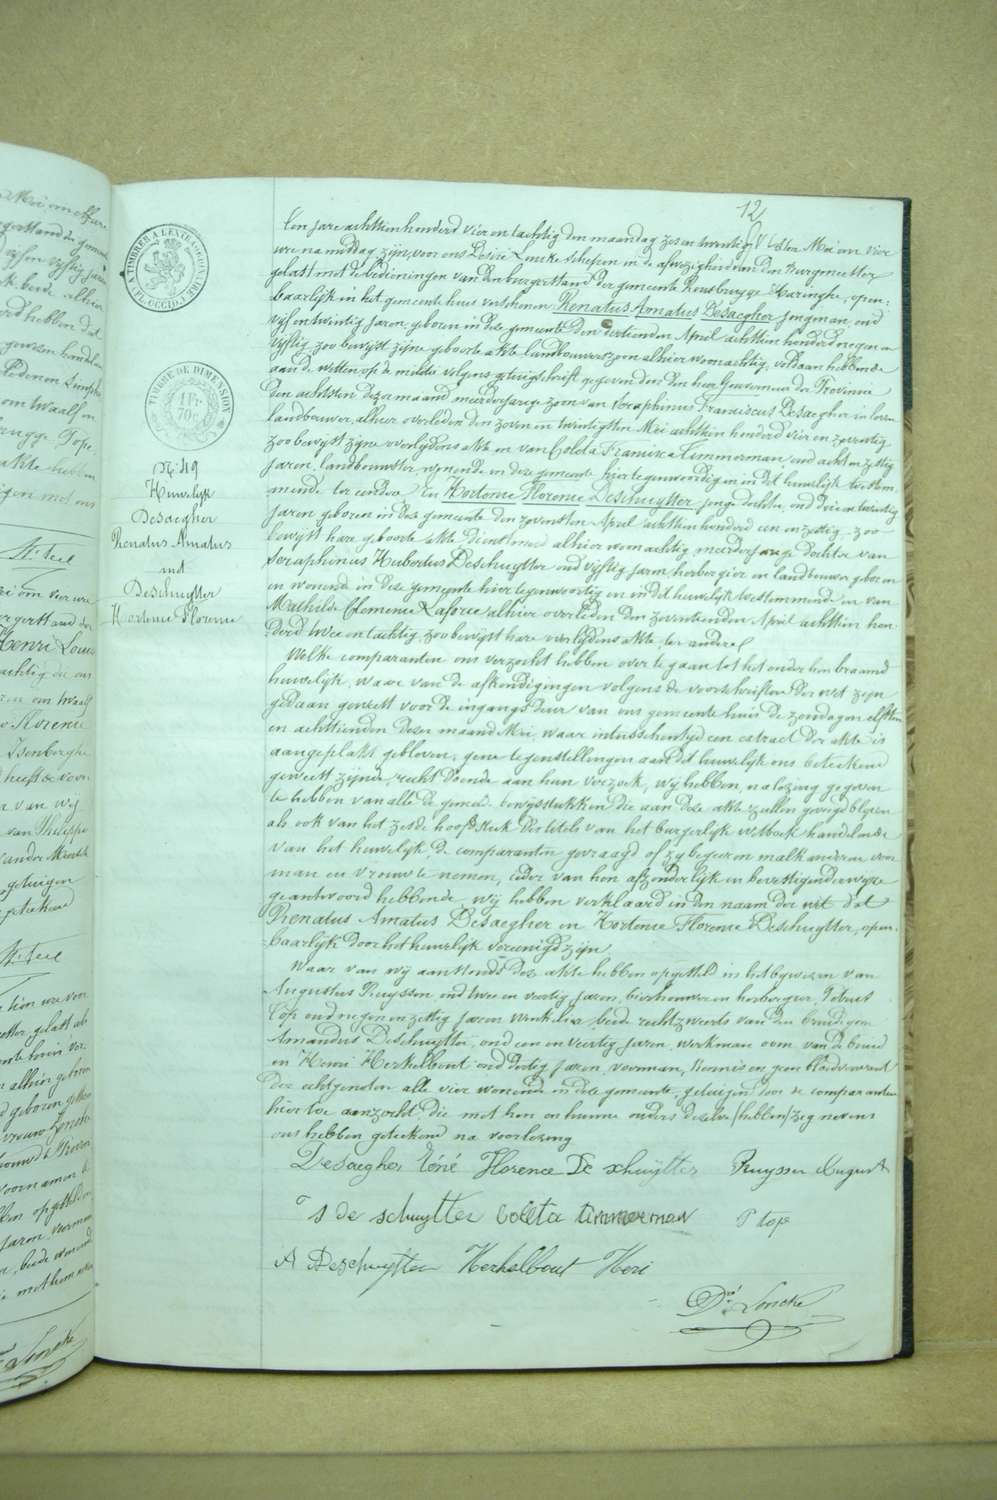 12
Een jare achttien honderd vier en tachtig den maandag zes en twintig Mei om vier
ure na middag zijn, voor ons Desiré Loncke schepen in de afwezigheid van den Burgmeester
gelast met de bedieningen van den burgerstand der gemeente Rousbrugge Haringhe, open-
baarlijk in het gemeente huis verschenen Renatus Amatus Desaegher jongman, oud
vijf en twintig jaren, geboren in deze gemeente den dertienden April achttien honderd negen en
vijftig zoo bewijst zijne geboorte akte landbouwerszoon alhier woonachtig, voldaan hebbende
aan de wetten op de militie volgens getuigschrift gegeven door den heer Gouverneur der Provincie
den achtsten dezer maand meerderjarige zoon van Seraphinus Franciscus Desaegher in leven
landbouwer, alhier overleden den zeven en twintigsten Mei achttien honderd vier en zeventig
zoo bewijst zijne overlijdens akte en van Coleta Francisca Timmerman, oud acht en zestig
jaren, landbouwster, wonende in deze gemeente hier tegenwoordig en in dit huwelijk toestem-
mende ter eender en Hortence Florence Deschuytter jonge dochter, oud drie en twintig
jaren geboren in deze gemeente den zevensten April achttien honderd een en zestig, zoo
bewijst hare geboorte akte dienstmeid alhier woonachtig meerderjarige dochter van
Seraphinus Hubertus Deschuytter oud vijftig jaren, herbergier en landbouwer geboren
en wonende in deze gemeente hier tegenwoordig en in dit huwelijk toestemmende en van
Mathilde Clemence Laforce alhier overleden den zeventienden April achttien hon-
derd twee en tachtig, zoo bewijst hare overlijdens akte, ter andere
Welke comparanten ons verzocht hebben over te gaan tot het onder hen beraamd
huwelijk, waar van de afkondigingen volgens de voorschriften der wet zijn
gedaan geweest voor de ingangsdeur van ons gemeente huis de zondagen elfsten
en achttienden dezer maand Mei, waar intusschentijd een extract der akte is
aangeplakt gebleven, geene tegenstellingen aan dit huwelijk ons beteekend
geweest zijnde, recht doende aan hun verzoek, wij hebben, na lezing gegeven
te hebben van alle de gemeld. bewijsstukken die aan deze akte zullen gevoegd blijven
als ook van het zesde hoofdstuk des titels van het burgerlijk wetboek handelende
van het huwelijk, de comparanten gevraagd of zy begeeren malkanderen voor
man en vrouw te nemen, ieder van hen afzonderlijk en bevestigenderwijze
geantwoord hebbende, wij hebben verklaard in den naam der wet dat
Renatus Amatus Desaegher en Hortence Florence Deschuytter, open-
baarlijk door het huwelijk vereenigd zijn
Waar van wij aanstonds deze akte hebben opgesteld in het bywezen van
Augustus Ruyssen, oud twee en veertig jaren, bierbrouwer en herbergier, Petrus
Top oud negen en zestig jaren winkelier beide rechtzweers van den bruidegom
Amandus Deschuytter, oud een en veertig jaren, werkman oom van de bruid
en Henri Herkelbout oud dertig jaren, voerman, kennis en geen bloedverwant
der echtgenoten alle vier wonende in deze gemeente, getuigen door de comparanten
hier toe aanzocht die met hen en hunne ouders dezelve (hebben) zeg nevens
ons hebben geteekend na voorlezing
Desaegher Réné Florence De schuytter Ruyssen August
s de schuytter Coleta timmerman P top
A Deschuytter Herkelbout Heri
Dré Loncke
N: 49
Huwelijk
Desaegher
Renatus Amatus
met
Deschuytter
Hortence Florence
A TIMBRER A L'EXTRAORDINAIRE
FL. OCCID.
TIMBRE DE DIMENSION
1 Fr
70 c